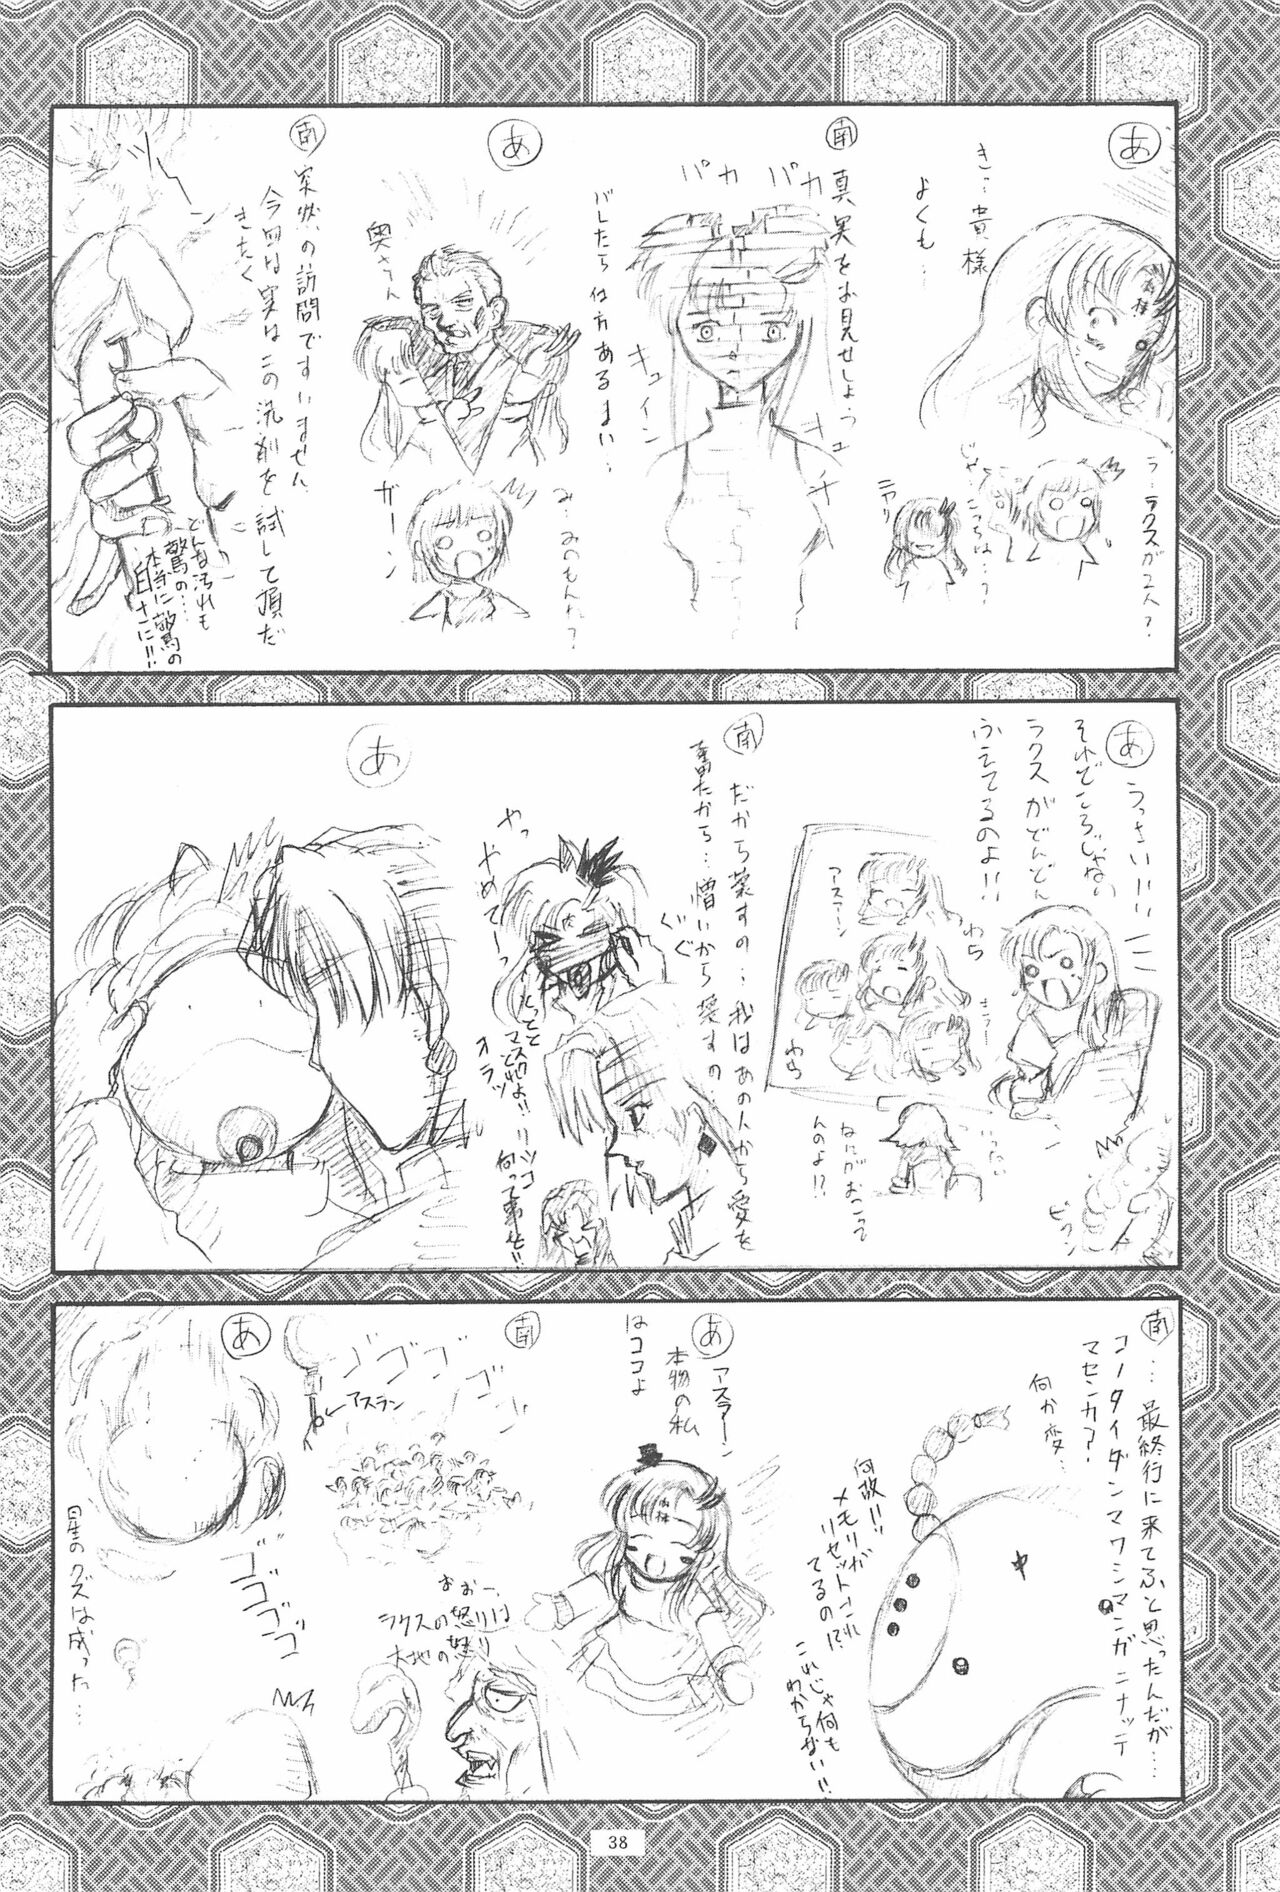 あ
き…貴様
よくも…
ラ…ラクスが2人？
じゃ…こっちは…？
ニアリ
南
真実をお見せしようっ
パカ
パカ
キュイン
キュ
チ
バレたら仕方あるまい…
あ
奥さん
み…みのもんた？
ガーン
南
突然の訪問ですいません
今回は実はこの洗剤を試して頂だ
きたく
どんな汚れも
驚の…
本当に驚の
白さに!!
あ
うっさい!!
それどころじゃない
ラクスがどんどん
ふえてるのよ!!
アースラーン
わら
キラー
わら
いったい
なにがおこって
んのよ!?
ビクン
南
だから
の…私はあの人から愛を
奪ったから…憎いから
の…
ぐぐ
やっ
やめてーっ
とってと
マスクよ!!
オラッ
リツコ
何って事を!!
あ
南
…最終行に来てふと思ったんだが…
コノタイダンマワシマンガニナッテ
マセンカ？
何か変…
中
何故!!ッ
メモリが
リセットされ
てるの!?
これじゃ何も
わからない!!
あ
アスラーン
本物の私
はココよ
南
ゴゴゴゴ
アスラン
おおー、
ラクスの怒りは
大地の怒り
あ
ゴゴゴゴゴ
星のクズは成った…
38